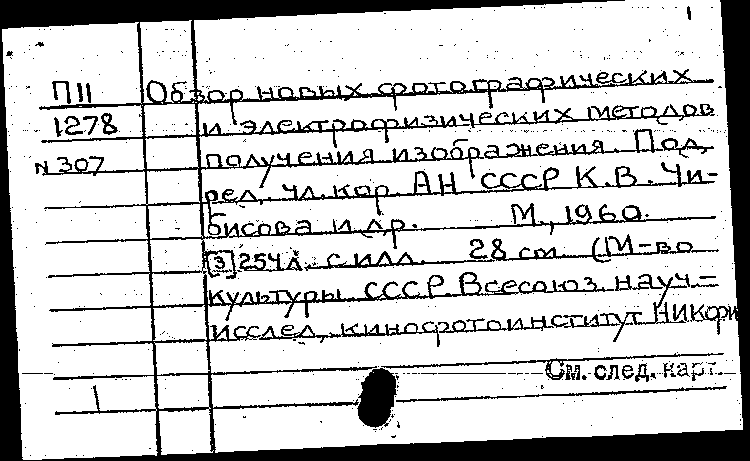 1
П11 Обзор новых фотографических
1278 и электрофизических методов
N 307 получения изображения. Под.
ред. чл. кор. АН СССР К.В. Чи-
бисова и др. М., 1960.
[3] 254 л. с илл. 28 см. (М-во
культуры СССР. Всесоюз. науч.-
исслед. кинофотоинститут НИКФИ
См. след. карт.
1